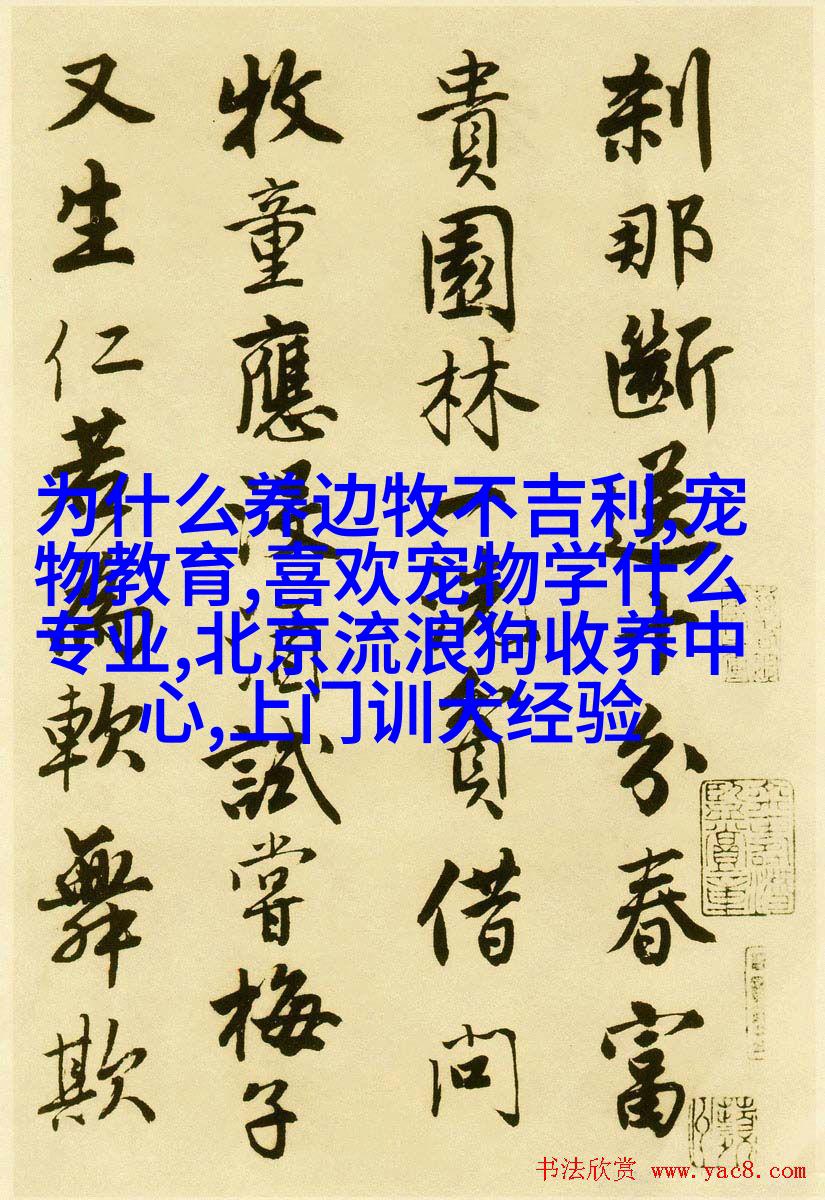 刹那斷送十分春富
貴園林一洗貧借問
牧童應没酒試嘗梅子
又生仁若為軟舞欺
为什么养边牧不吉利,宠
物教育,喜欢宠物学什么
专业,北京流浪狗收养中
心,上门训犬经验
书法欣赏 www.yac8.com